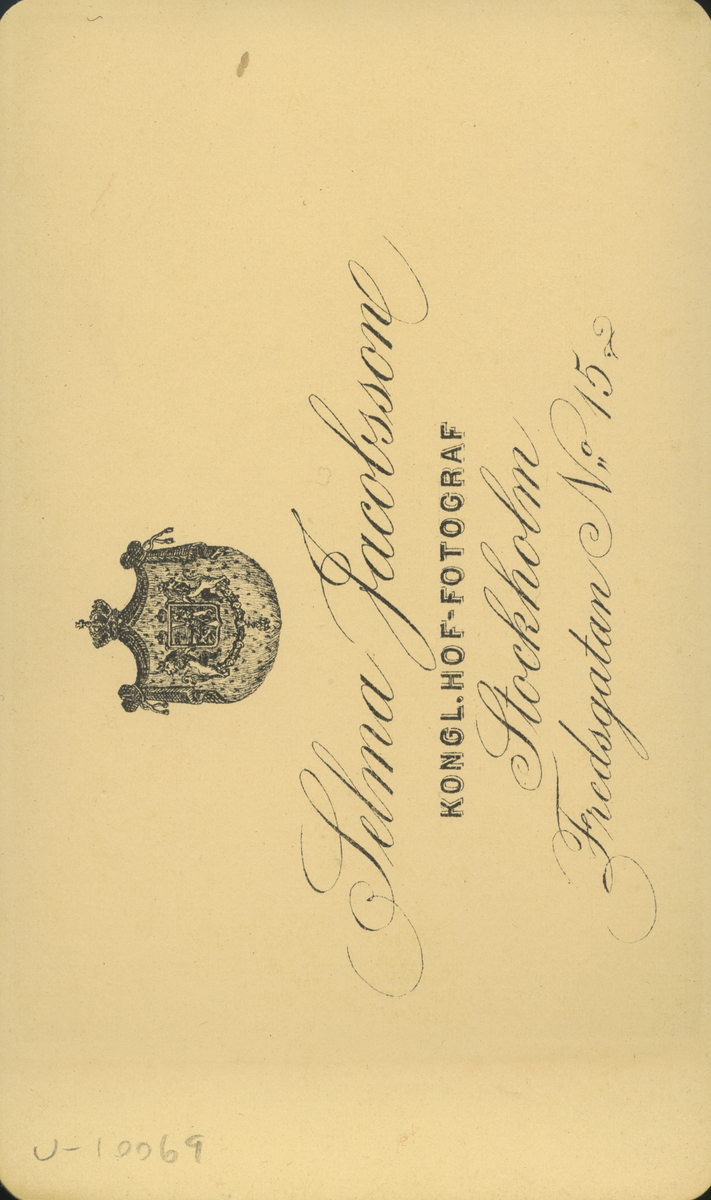 Selma Jacobsson
KONGL. HOF-FOTOGRAF
Stockholm
Fredsgatan No 15.
U-10069